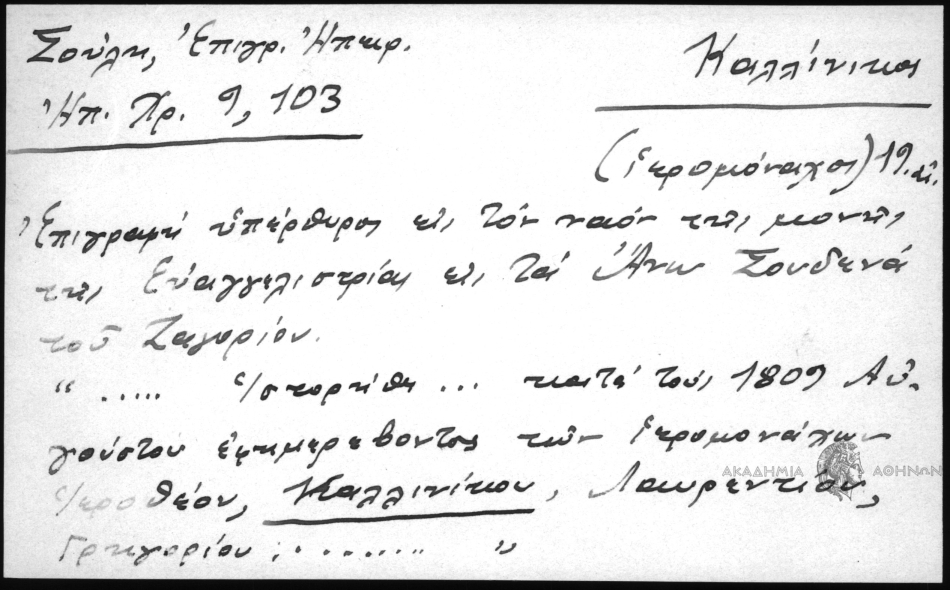 Σούλη, Ἐπιγρ. Ἠπειρ.
Ἠπ. Χρ. 9, 103
Καλλίνικος
(ἱερομόναχος) 19. αἰ.
Ἐπιγραφή ὑπέρθυρος εἰς τόν ναόν τῆς μονῆς
τῆς Εὐαγγελιστρίας εἰς τά Ἄνω Σουδενά
τοῦ Ζαγορίου.
“ ..... Ἱστορήθη ... κατά τούς 1809 Αὐ-
γούστου ἐφημερεβοντος τῶν ἱερομονάχων
Ἱεροθέου, Καλλινίκου, Λαυρεντίου,
Γρηγορίου ......... ”
ΑΚΑΔΗΜΙΑ ΑΘΗΝΩΝ